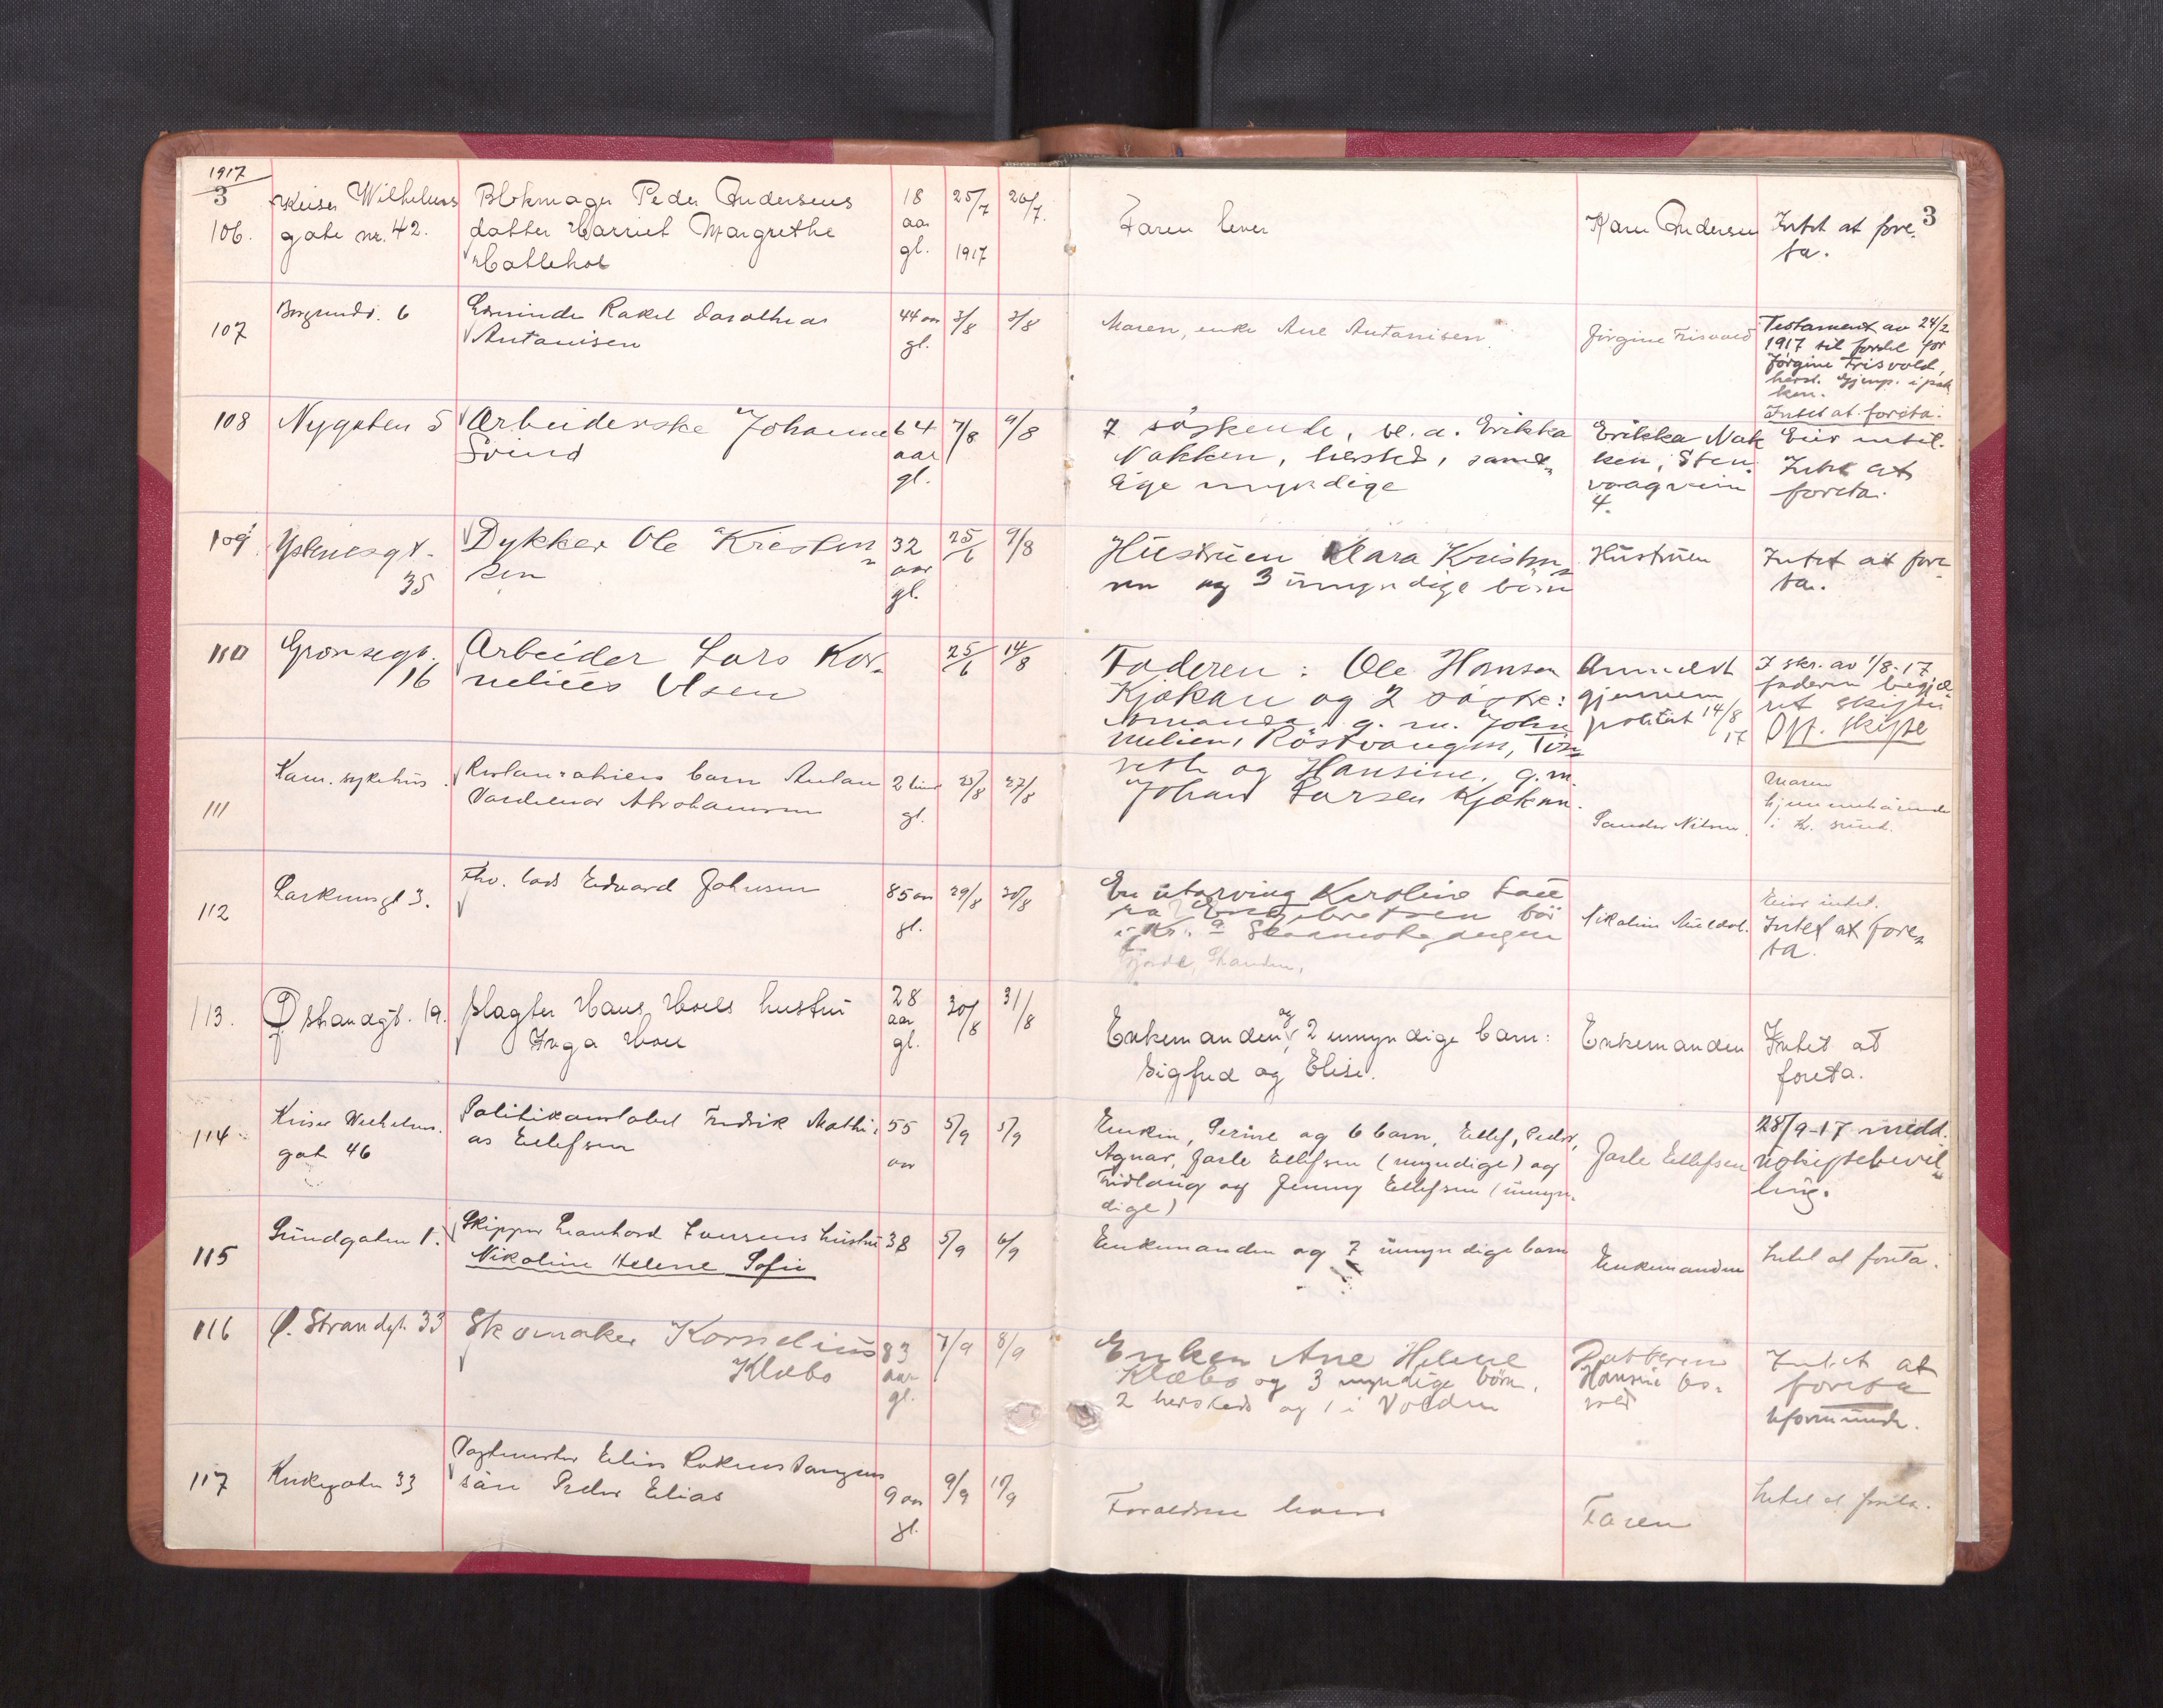 1917
3
106.
Keiser Wilhelms
gate nr. 42.
Blokmager Peder Andersens
datter Harriet Margrethe
Hatlehol
18
aar
gl.
25/7
1917
26/7.
Faren lever
Karen Andersen
Intet at fore-
ta.
3
107
Borgundv. 6
Rakel Dorothea
Antonisen
44 aar
gl.
3/8
3/8
Moren, enke Ane Antonisen.
Jørgine Frisvold
Testament av 24/2
1917 til fordel for
Jørgine Frisvold,
herst. Gjenp. i pak
ken.
Intet at foreta.
108
Nygaten 5
Arbeiderske Johanne
Svind
64
aar
gl.
7/8
9/8
7 søskende, bl. a. Erikka
Nakken, hersteds, samt-
lige myndige
Erikka Nak
ken, Sten-
vaagveien
4.
Eier intet.
Intet at
foreta.
109.
Ystenesgt.
35
Dykker Ole Kristen
sen
32
aar
gl.
25/6
9/8
Hustruen Klara Kristen
sen og 3 umyndige børn
Hustruen
Intet at fore-
ta.
110
Grønsegt.
16
Arbeider Lars Kor-
nelius Olsen
25/6
14/8
Faderen: Ole Hansen
Kjøkan og 2 søske:
g. m. John
Røstvangen, Tøn-
seth og Hansine, g. m.
Johan Larsen Kjøkan.
Anmeldt
gjennem
politiet 14/8
17
I skr. av 1/8-17
faderen begjæ-
ret skifte
Off. skifte
111
Kom. sykehus.
barn Anton
Valdemar Abrahamsen
2 timer
gl.
25/8
27/8
Sander Nilsen.
Moren
hjemmehørende
i Kr. sund.
112
Larkumgt 3.
Fhv. lods Edvard Johnsen
85 aar
gl.
29/8
30/8
En utarving Karoline
Engebretsen bor
i Kr.a
Nikoline
Eier intet.
Intet at fore-
ta.
113.
Ø. strandgt. 19.
slagter Hans Hoels hustru
Inga Hoel
28
aar
gl.
30/8
31/8
Enkemanden og 2 umyndige barn:
Sigfred og Elise.
Enkemanden
Intet at
foreta.
114
Keiser Wilhelms.
gate 46
Politikonstabel Fredrik Mathi-
as Ellefsen
55
aar
5/9
5/9
Enken, Perine og 6 barn, Ellef, Peder,
Agnar, Jarle Ellefsen (myndige) og
Fridlaug og Jenny Ellefsen (umyn-
dige)
Jarle Ellefsen
28/9-17 medd.
uskiftebevil-
ling.
115
Sundgaten 1.
Skipper Leonhard Iversens hustru
Nikoline Helene Sofie
38
5/9
6/9
Enkemanden og 7 umyndige barn
Enkemanden
Intet at foreta.
116
Ø. Strandgt. 33
Skomaker Kornelius
Klæbo
83
aar
gl.
7/9
8/9
Enken Ane Helene
Klæbo og 3 myndige børn,
2 hersteds og 1 i Volden
Datteren
Hansine Os-
vold
Intet at
foreta
uformuende.
117
Kirkegaten 33
søn Peder Elias
9 aar
gl.
9/9
10/9
Forældrene lever
Faren
Intet at foreta.